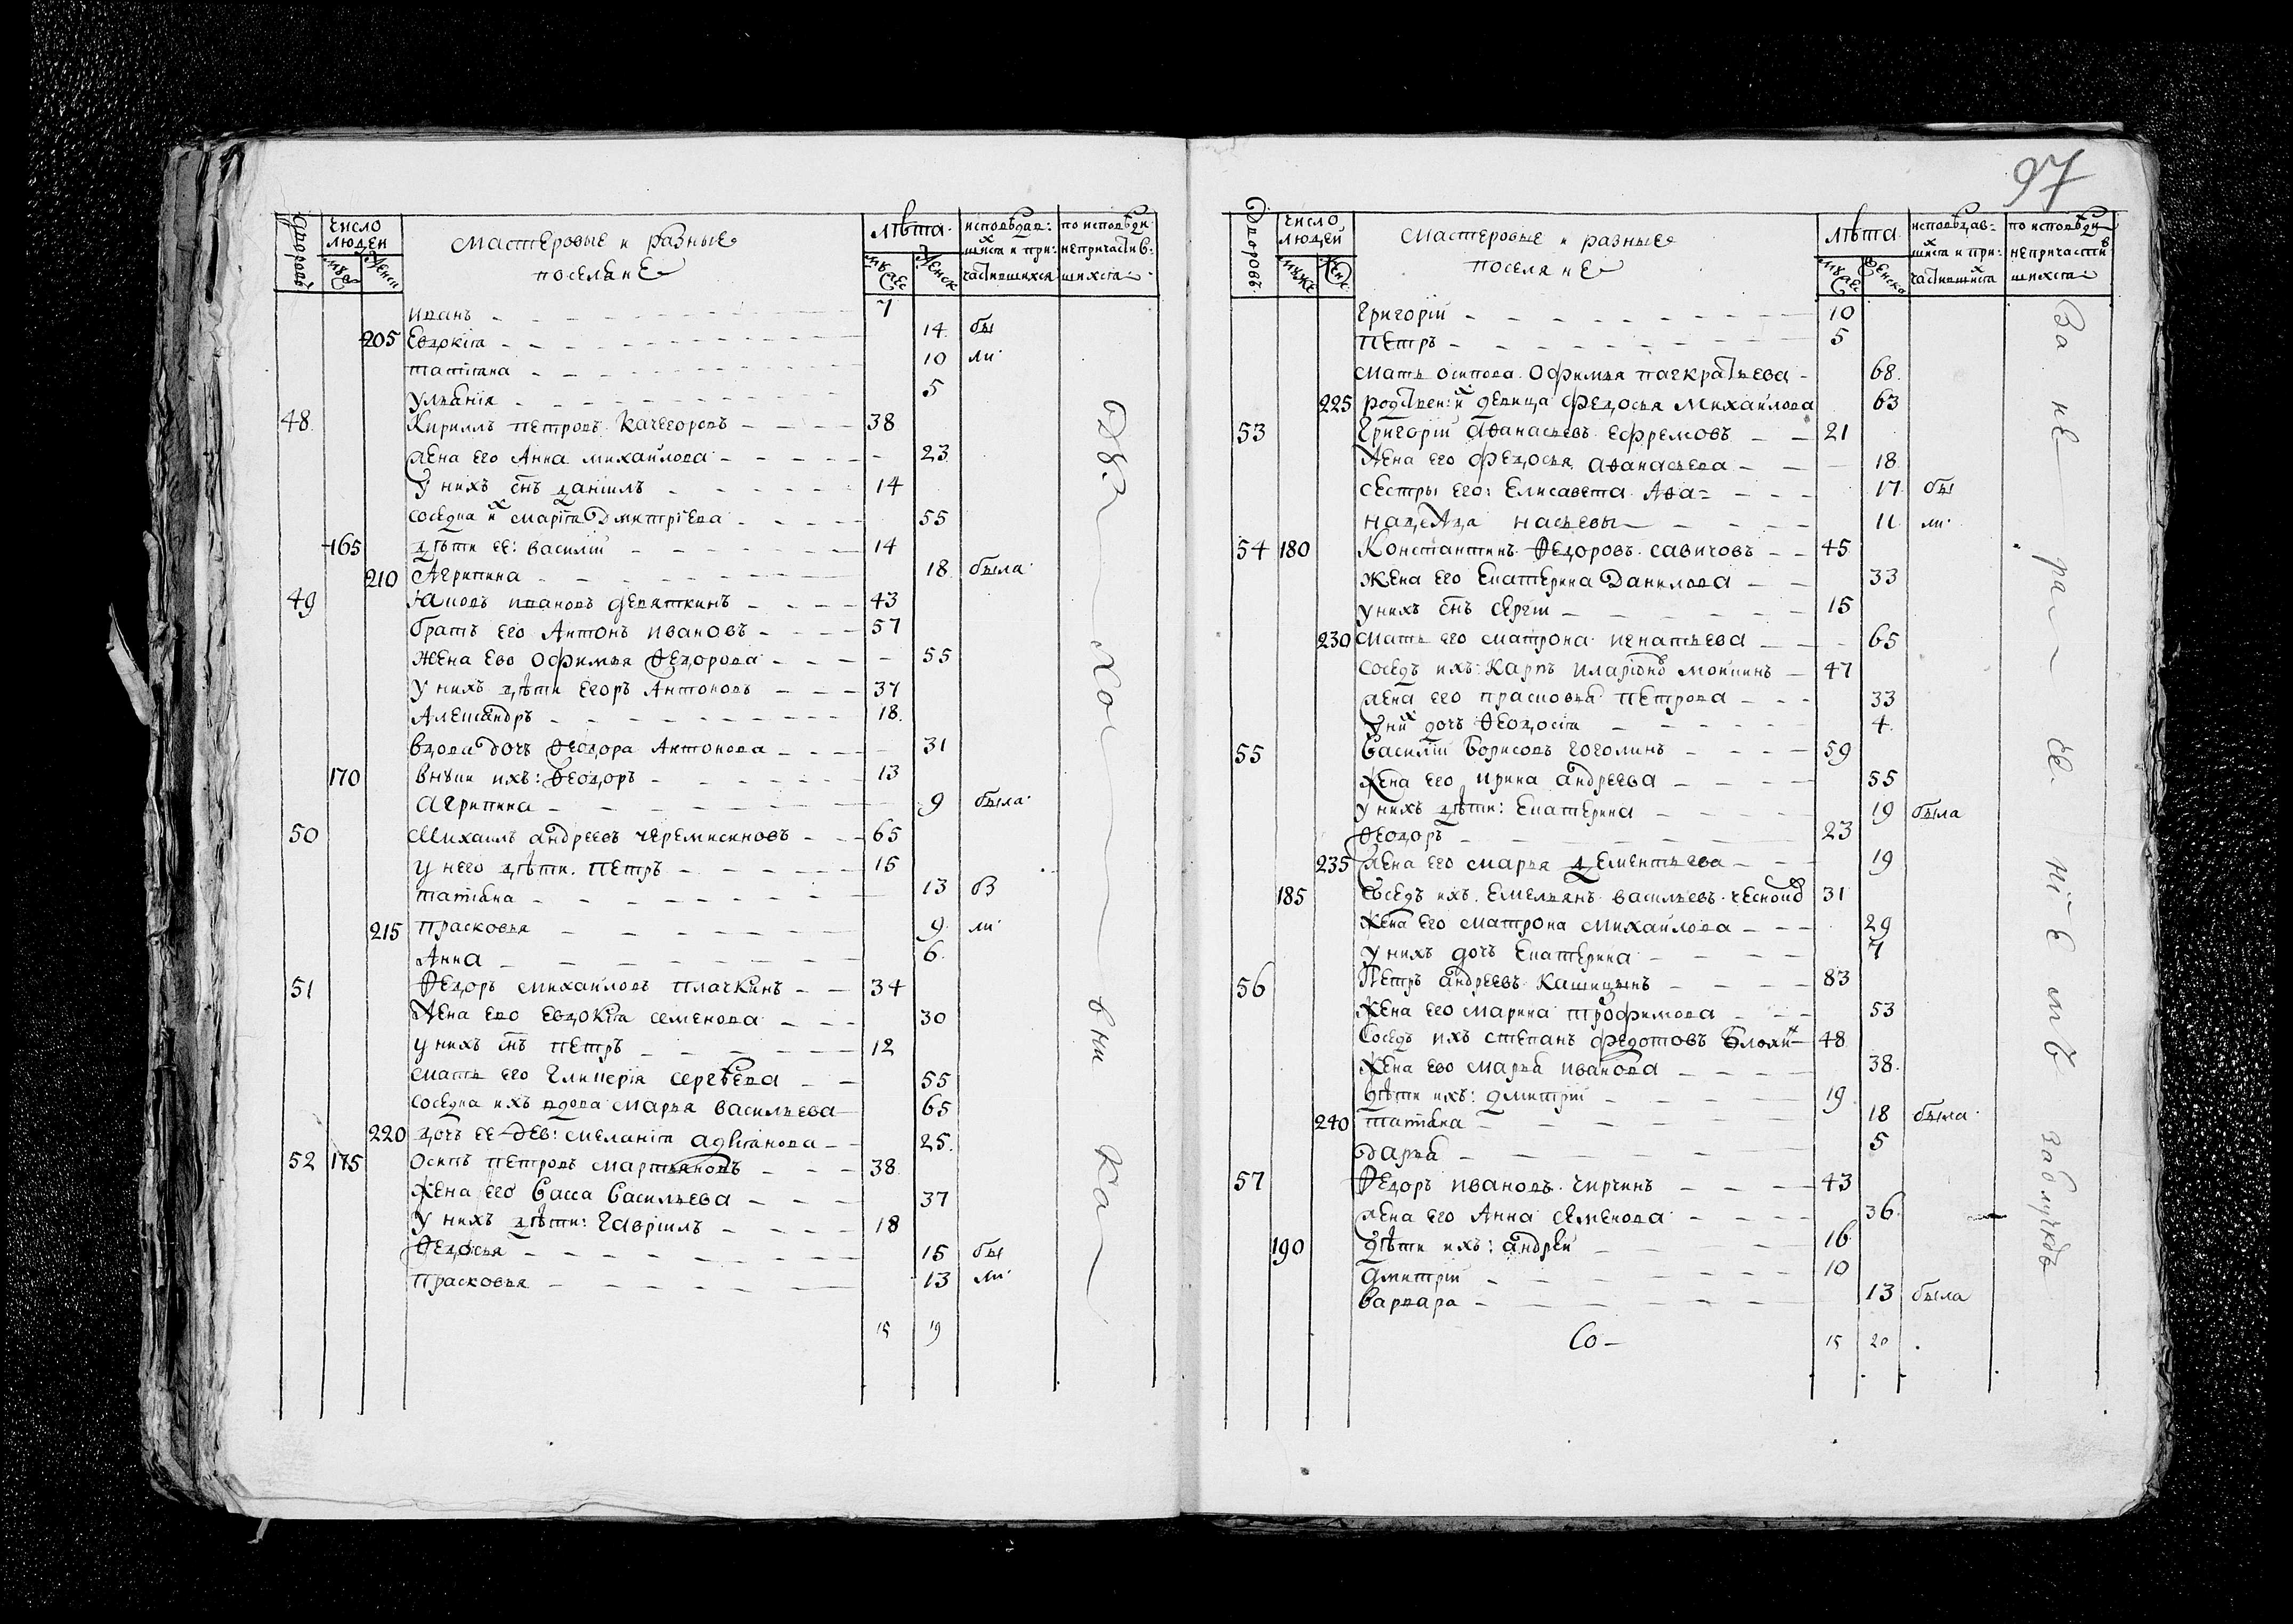 Дворовъ
число людей
мужс
женск
мастеровые и разные
поселяне
лѣта
мужес
женск
исповѣдав:
шихся и при:
частившихся
по исповѣди
непричастив:
шихся
иванъ 7
205 Евдокіа 14 бы
татіана 10 ли
ульянія 5
48 Кириллъ петровъ качегоровъ 38
жена его Анна михайлова 23
у нихъ снъ даніилъ 14
соседка их маріа Дмитріева 55
165 дѣти ее: василій 14
210 Агрипина 18 была
49 Іаковъ ивановъ девяткинъ 43
братъ его Антонъ ивановъ 57
жена ево Офимья Ѳедорова 55
у нихъ дѣти егоръ Антоновъ 37
Александръ 18
вдова дочь Ѳеодора Антонова 31
170 внуки ихъ: Ѳеодоръ 13
агрипина 9 была
50 Михаилъ андреевъ черемисиновъ 65
у него дѣти. Петръ 15
татіана 13 бы
215 прасковья 9 ли
Анна 6
51 Ѳедоръ михаиловъ плачкинъ 34
жена ево евдокіа семенова 30
у нихъ снъ петръ 12
мать его гликерія сергѣева 55
соседка ихъ вдова марья васильева 65
220 дочь ее дев: меланіа адріанова 25
52 175 Осипъ петровъ мартьяновъ 38
жена его васса васильева 37
у нихъ дѣти: гавріилъ 18
Ѳедосья 15 бы
прасковья 13 ли
15 19
97
Дворовъ
число людей
мужс
женс
мастеровые и разные
поселяне
лѣта
мужес
женска
исповѣдав-
шихся и при:
частившихся
по исповѣди
непричастив
шихся
григорій 10
петръ 5
мать осипова Офимья панкратьева 68
225 родствен: их девица федосья михайлова 63
53 григорій аѳанасьевъ ефремовъ 21
жена его федосья аѳанасьева 18
сестры его: елисавета Аѳа= 17 бы
надежда насьевы 11 ли
54 180 Константинъ Ѳедоровъ савичовъ 45
жена его екатерина Данилова 33
у нихъ снъ сергій 15
230 мать его матрона игнатьева 65
соседъ ихъ: карпъ иларіоновъ мокинъ 47
жена его прасковья петрова 33
у них дочь Ѳеодосіа 4
55 василій борисовъ гоголинъ 59
жена его ирина андреева 55
у нихъ дѣти: екатерина 19 была
Ѳеодоръ 23
235 жена его марья дементьева 19
185 соседъ ихъ. емельянъ васильевъ чесноковъ 31
жена его матрона михайлова 29
у нихъ дочь екатерина 7
56 Петръ андреевъ кашицынъ 83
жена его марина трофимова 53
соседъ ихъ степанъ федотовъ блохин 48
жена ево марья иванова 38
дѣти ихъ: дмитрій 19
240 татіана 18 была
дарья 5
57 Ѳедоръ ивановъ чирчинъ 43
жена его Анна семенова 36
190 дѣти ихъ: андрей 16
дмитрій 10
варвара 13 была
Со- 15 20